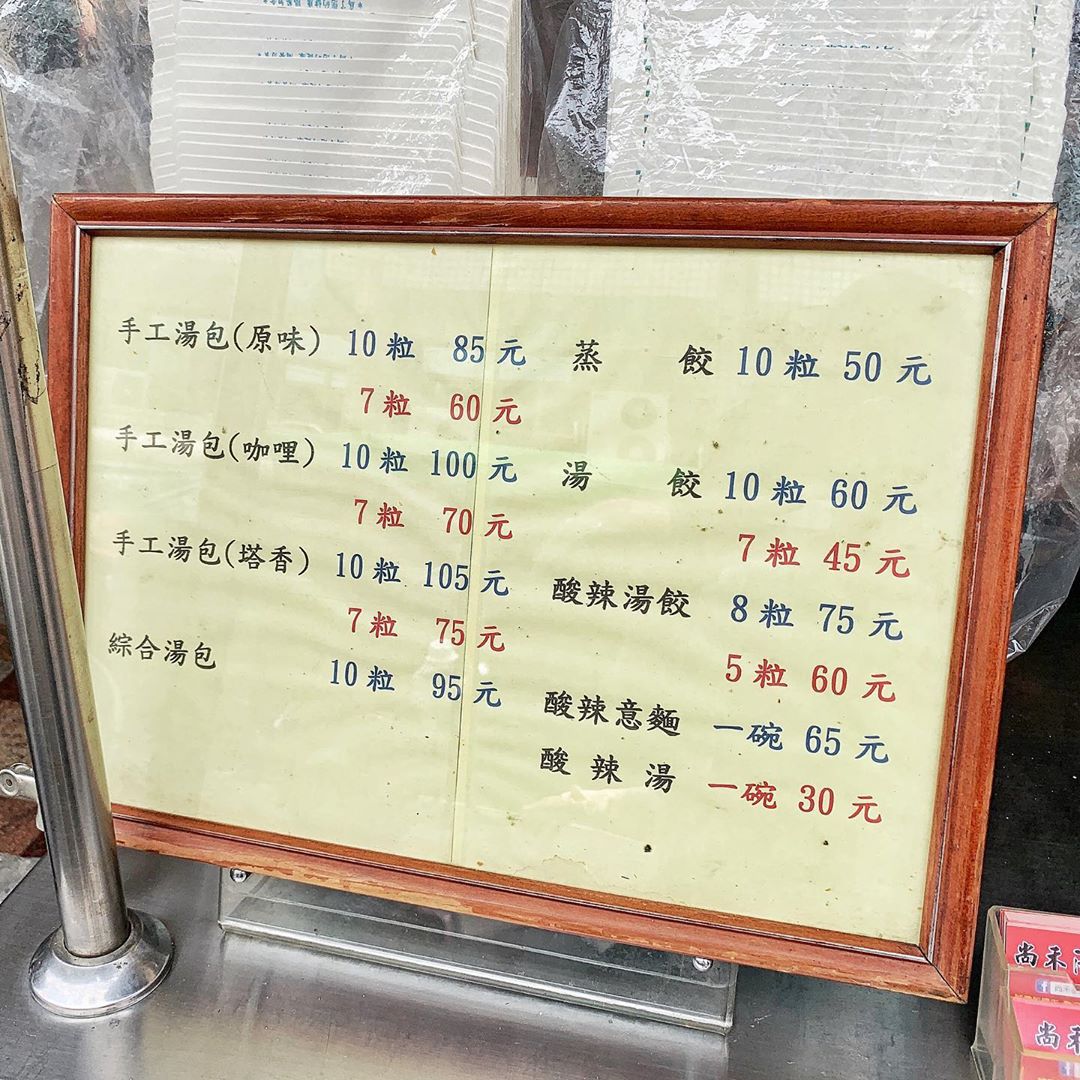 手工湯包(原味) 10粒 85元
7粒 60元
手工湯包(咖哩) 10粒 100元
7粒 70元
手工湯包(塔香) 10粒 105元
7粒 75元
綜合湯包 10粒 95元
蒸 餃 10粒 50元
湯 餃 10粒 60元
7粒 45元
酸辣湯餃 8粒 75元
5粒 60元
酸辣意麵 一碗 65元
酸辣湯 一碗 30元
尚禾
尚